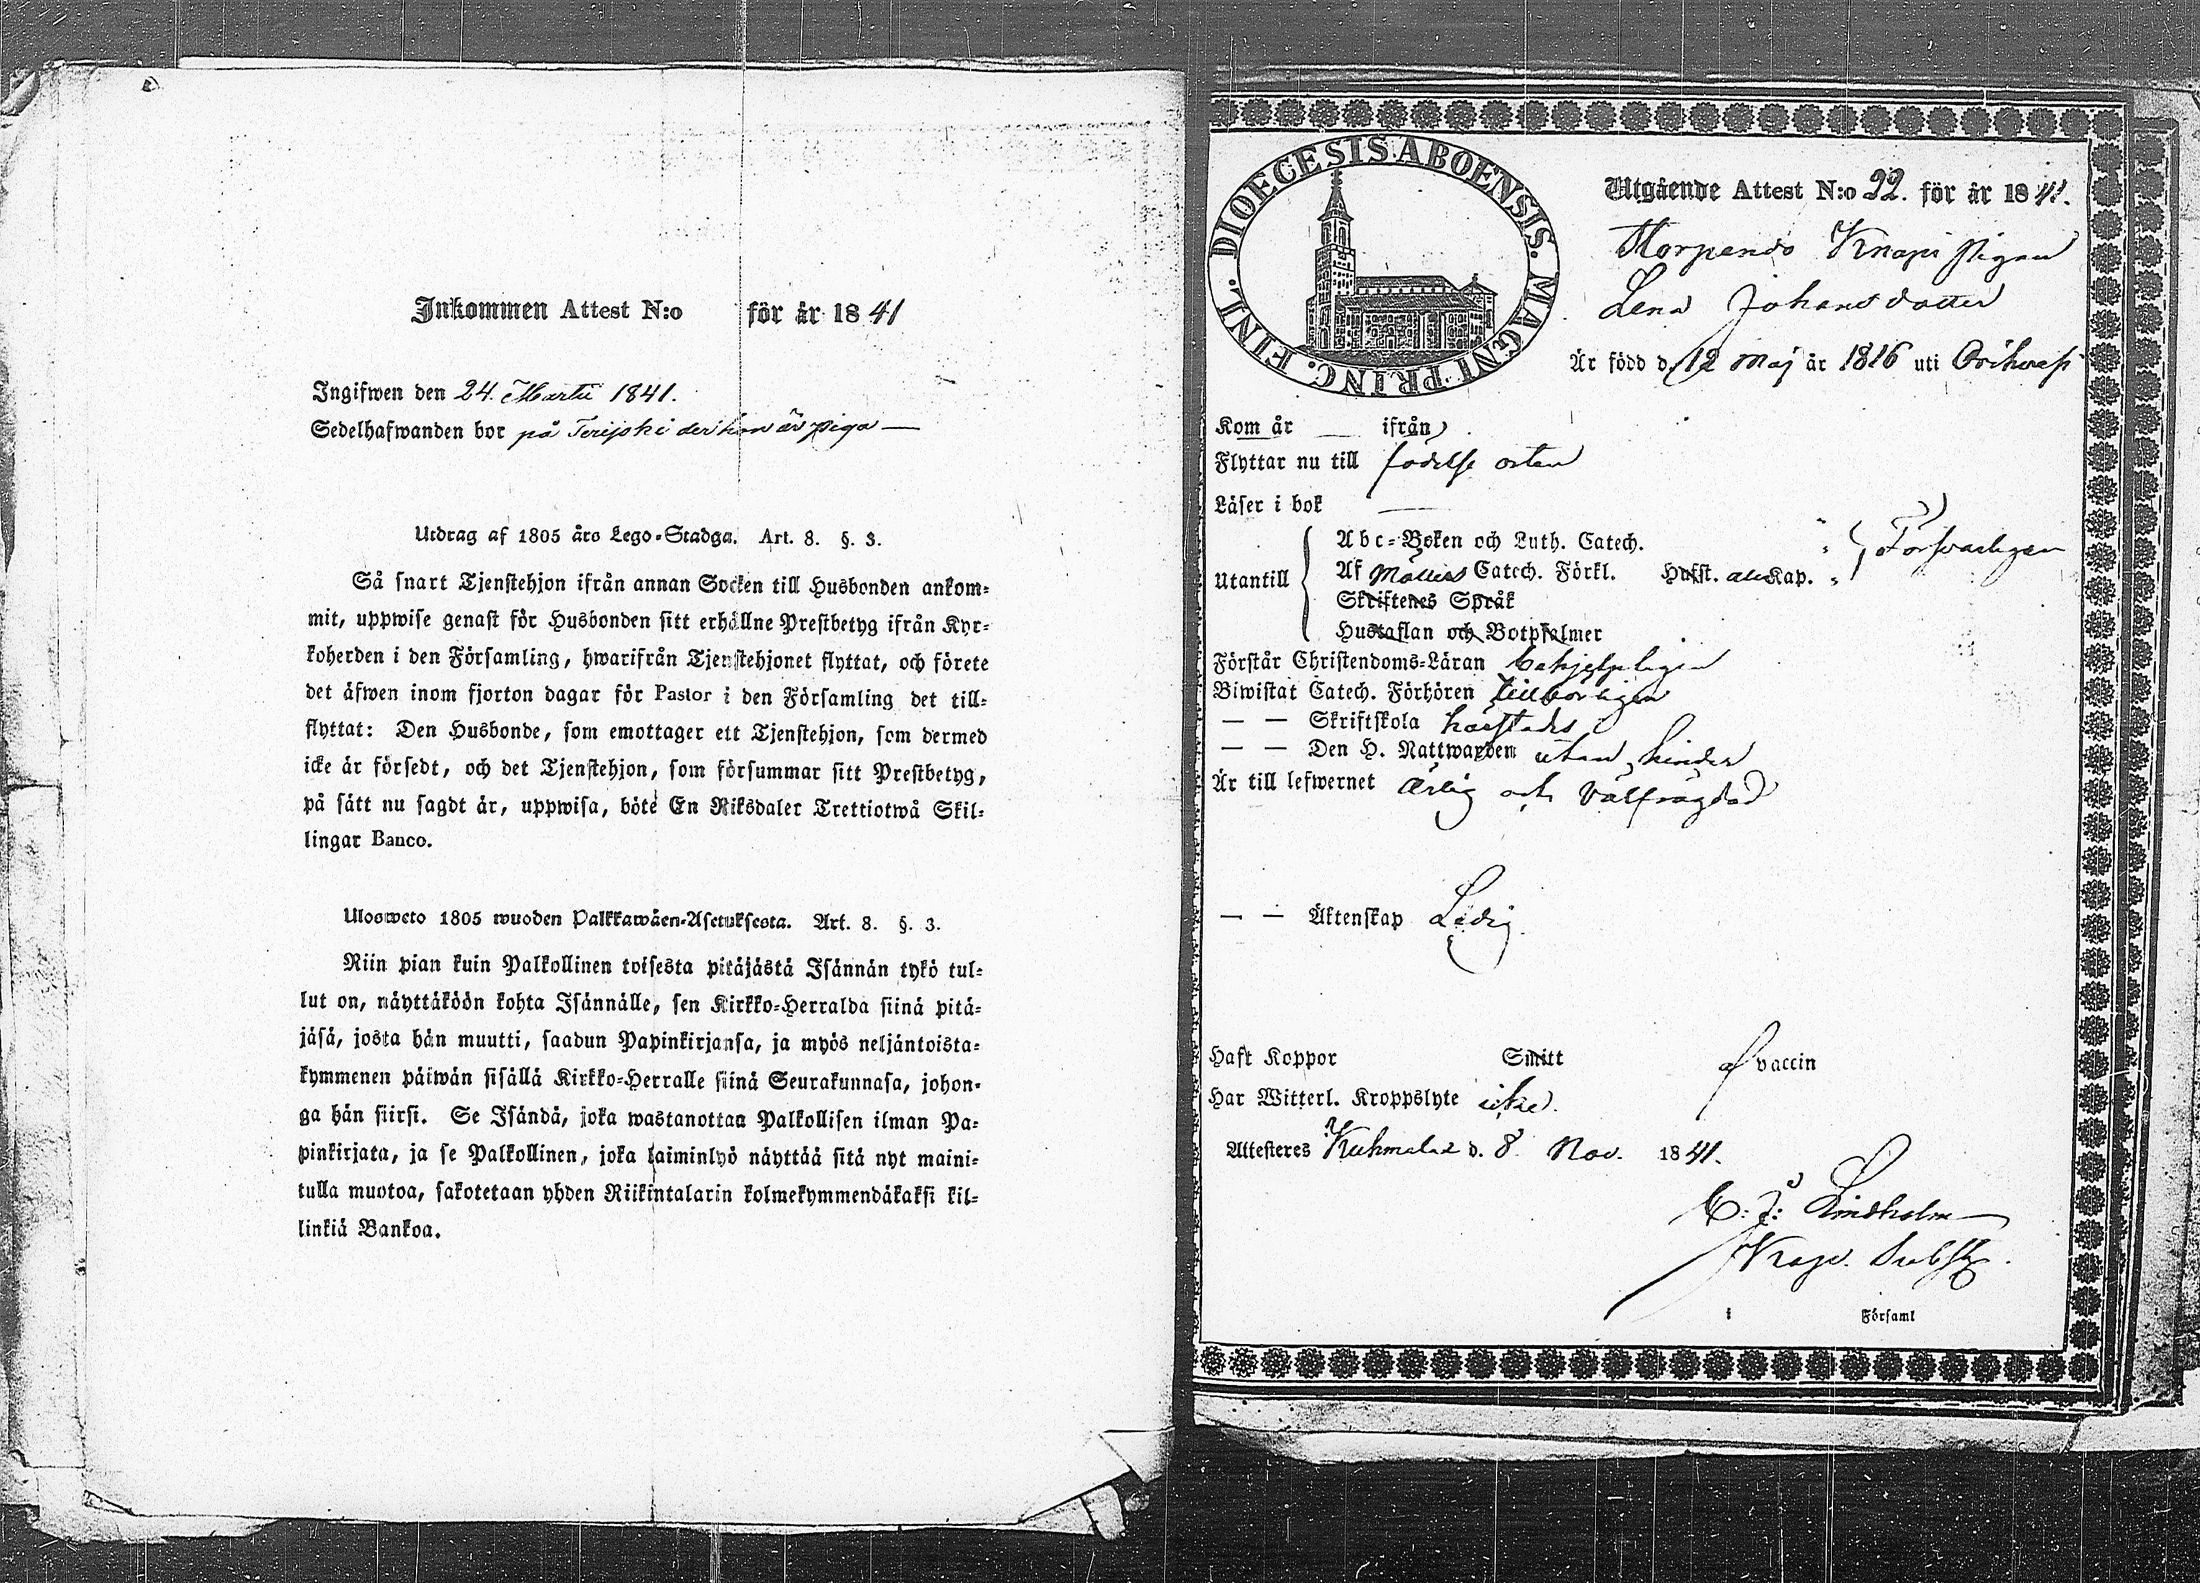 Inkommen Attest N:o för år 1841
Ingifwen den 24. Martii 1841.
Sedelhafwanden bor på der hon är piga —
Utdrag af 1805 års Lego-Stadga. Art. 8. §. 3.
Så snart Tjenstehjon ifrån annan Socken till Husbonden ankom-
mit, uppwise genast för Husbonden sitt erhållne Prestbetyg ifrån Kyr-
koherden i den Församling, hwarifrån Tjenstehjonet flyttat, och förete
det äfwen inom fjorton dagar för Pastor i den Församling det till-
flyttat: Den Husbonde, som emottager ett Tjenstehjon, som dermed
icke är försedt, och det Tjenstehjon, som försummar sitt Prestbetyg,
på sätt nu sagdt är, uppwisa, böte En Riksdaler Trettiotwå Skil-
lingar Banco.
Ulosweto 1805 wuoden Palkkawäen-Asetuksesta. Art. 8. §. 3.
Niin pian kuin Palkollinen toisesta pitäjästä Isännän tykö tul-
lut on, näyttäköön kohta Isännälle, sen Kirkko-Herralda siinä pitä-
jäsä, josta hän muutti, saadun Papinkirjansa, ja myös neljäntoista-
kymmenen päiwän sisällä Kirkko-Herralle siinä Seurakunnasa, johon-
ga hän siirsi. Se Isändä, joka wastanottaa Palkollisen ilman Pa-
pinkirjata, ja se Palkollinen, joka laiminlyö näyttää sitä nyt maini-
tulla muotoa, sakotetaan yhden Riikintalarin kolmekymmendäkaksi kil-
linkiä Bankoa.
DIOECESIS ABOENSIS. MAGNI PRINC. FINL.
Utgående Attest N:o 22. för år 1841.
Knapi Pigan
Lena Johansdotter
Är född d. 12 Maj år 1816 uti Orihwesi
Kom år — ifrån
Flyttar nu till födelse orten
Läser i bok —
Utantill
Abc-Boken och Luth. Catech.
Af Möllers Catech. Förkl. Hufst. alla Kap.
Försvarligen
Skriftenes Språk
Hustaflan och Botpsalmer
Förstår Christendoms-Läran behjelpligen
Biwistat Catech. Förhören tillbörligen
— — Skriftskola härstädes
— — Den H. Nattwarden utan hinder
Är till lefwernet ärlig och välfrägdad
— — Äktenskap Ledig.
Haft Koppor Smitt af vaccin
Har Witterl. Kroppslyte icke.
Attesteras Kuhmalax d. 8 Nov. 1841.
Lindholm
i Församl